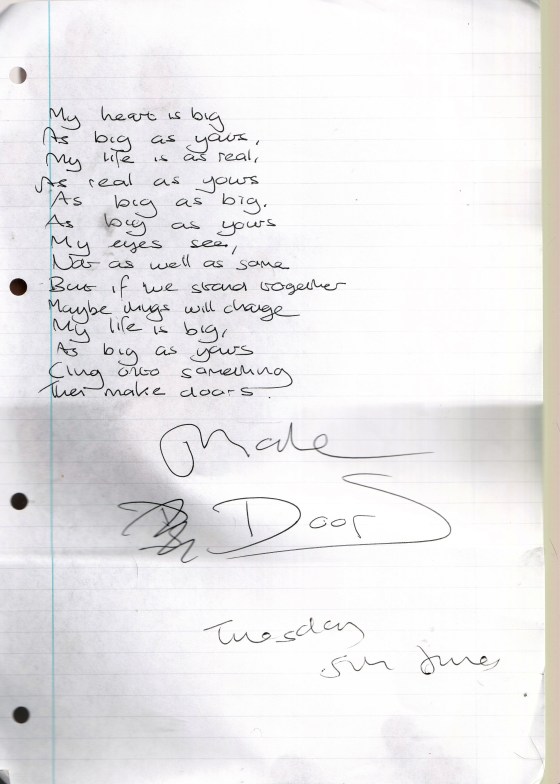 My heart is big
As big as yours,
My life is as real,
As real as yours
As big as big.
As big as yours
My eyes see,
Not as well as some
But if we stand together
Maybe things will change
My life is big,
As big as yours
Cling onto something
Then make doors.
Make
Doors
Tuesday
5th June